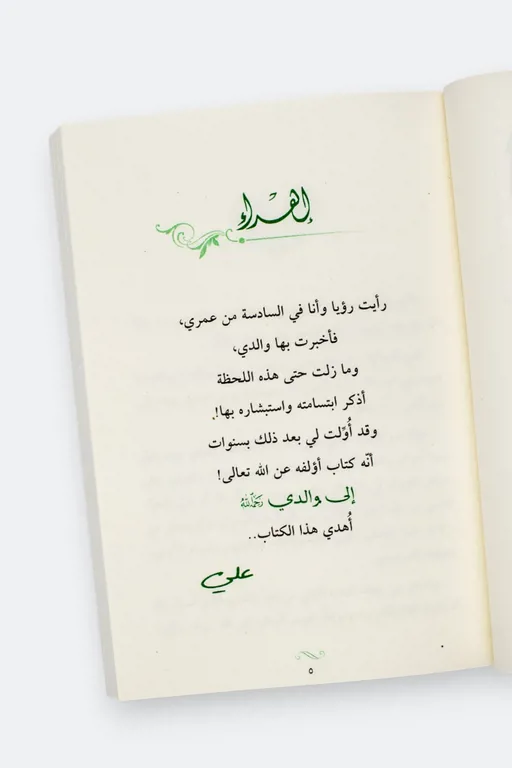 إهداء
رأيت رؤيا وأنا في السادسة من عمري،
فأخبرت بها والدي،
وما زلت حتى هذه اللحظة
أذكر ابتسامته واستبشاره بها!
وقد أُوِّلت لي بعد ذلك بسنوات
أنّه كتاب أؤلفه عن الله تعالى!
إلى والدي رحمه الله
أُهدي هذا الكتاب..
علي
٥